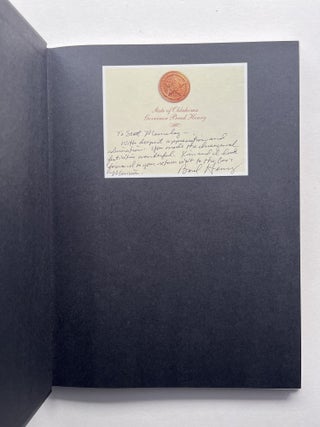 State of Oklahoma
Governor Brad Henry
To Scott Momaday —
With deepest appreciation and
admiration. You made the inaugural
festivities wonderful. Kim and I look
forward to your return visit to the Gov's
Mansion.
Brad Henry